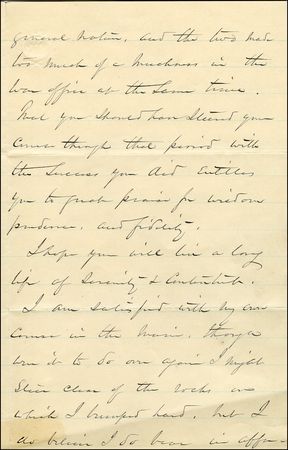 general nature, and the two made
too much of a muchness in the
War office at the same time.
That you should have steered your
course through that period with
the success you did entitles
you to great praise for wisdom
prudence, and fidelity.
I hope you will live a long
life of serenity &
I am satisfied with my own
course in the main, though
were it to do over again I might
steer clear of the rocks on
which I bumped hard, but I
do believe I do bear in